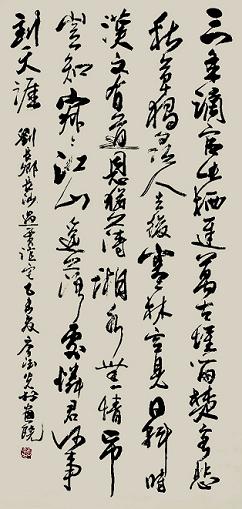 三年謫宦此栖遲萬古惟留楚客悲
秋草獨尋人去後寒林空見日斜時
漢文有道恩猶薄湘水無情吊
豈知寂々江山搖落處憐君何事
到天涯 劉長卿長沙過賈誼宅乙酉夏